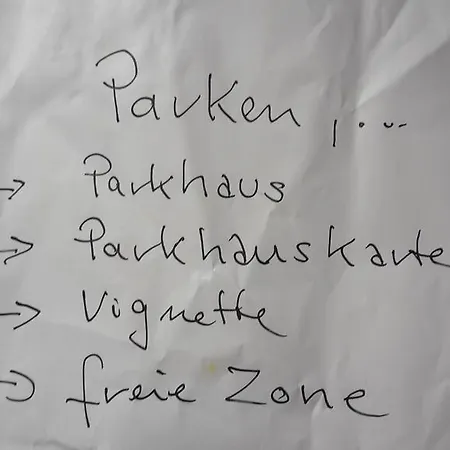 Parken, ...
→ Parkhaus
→ Parkhauskarte
→ Vignette
→ freie Zone